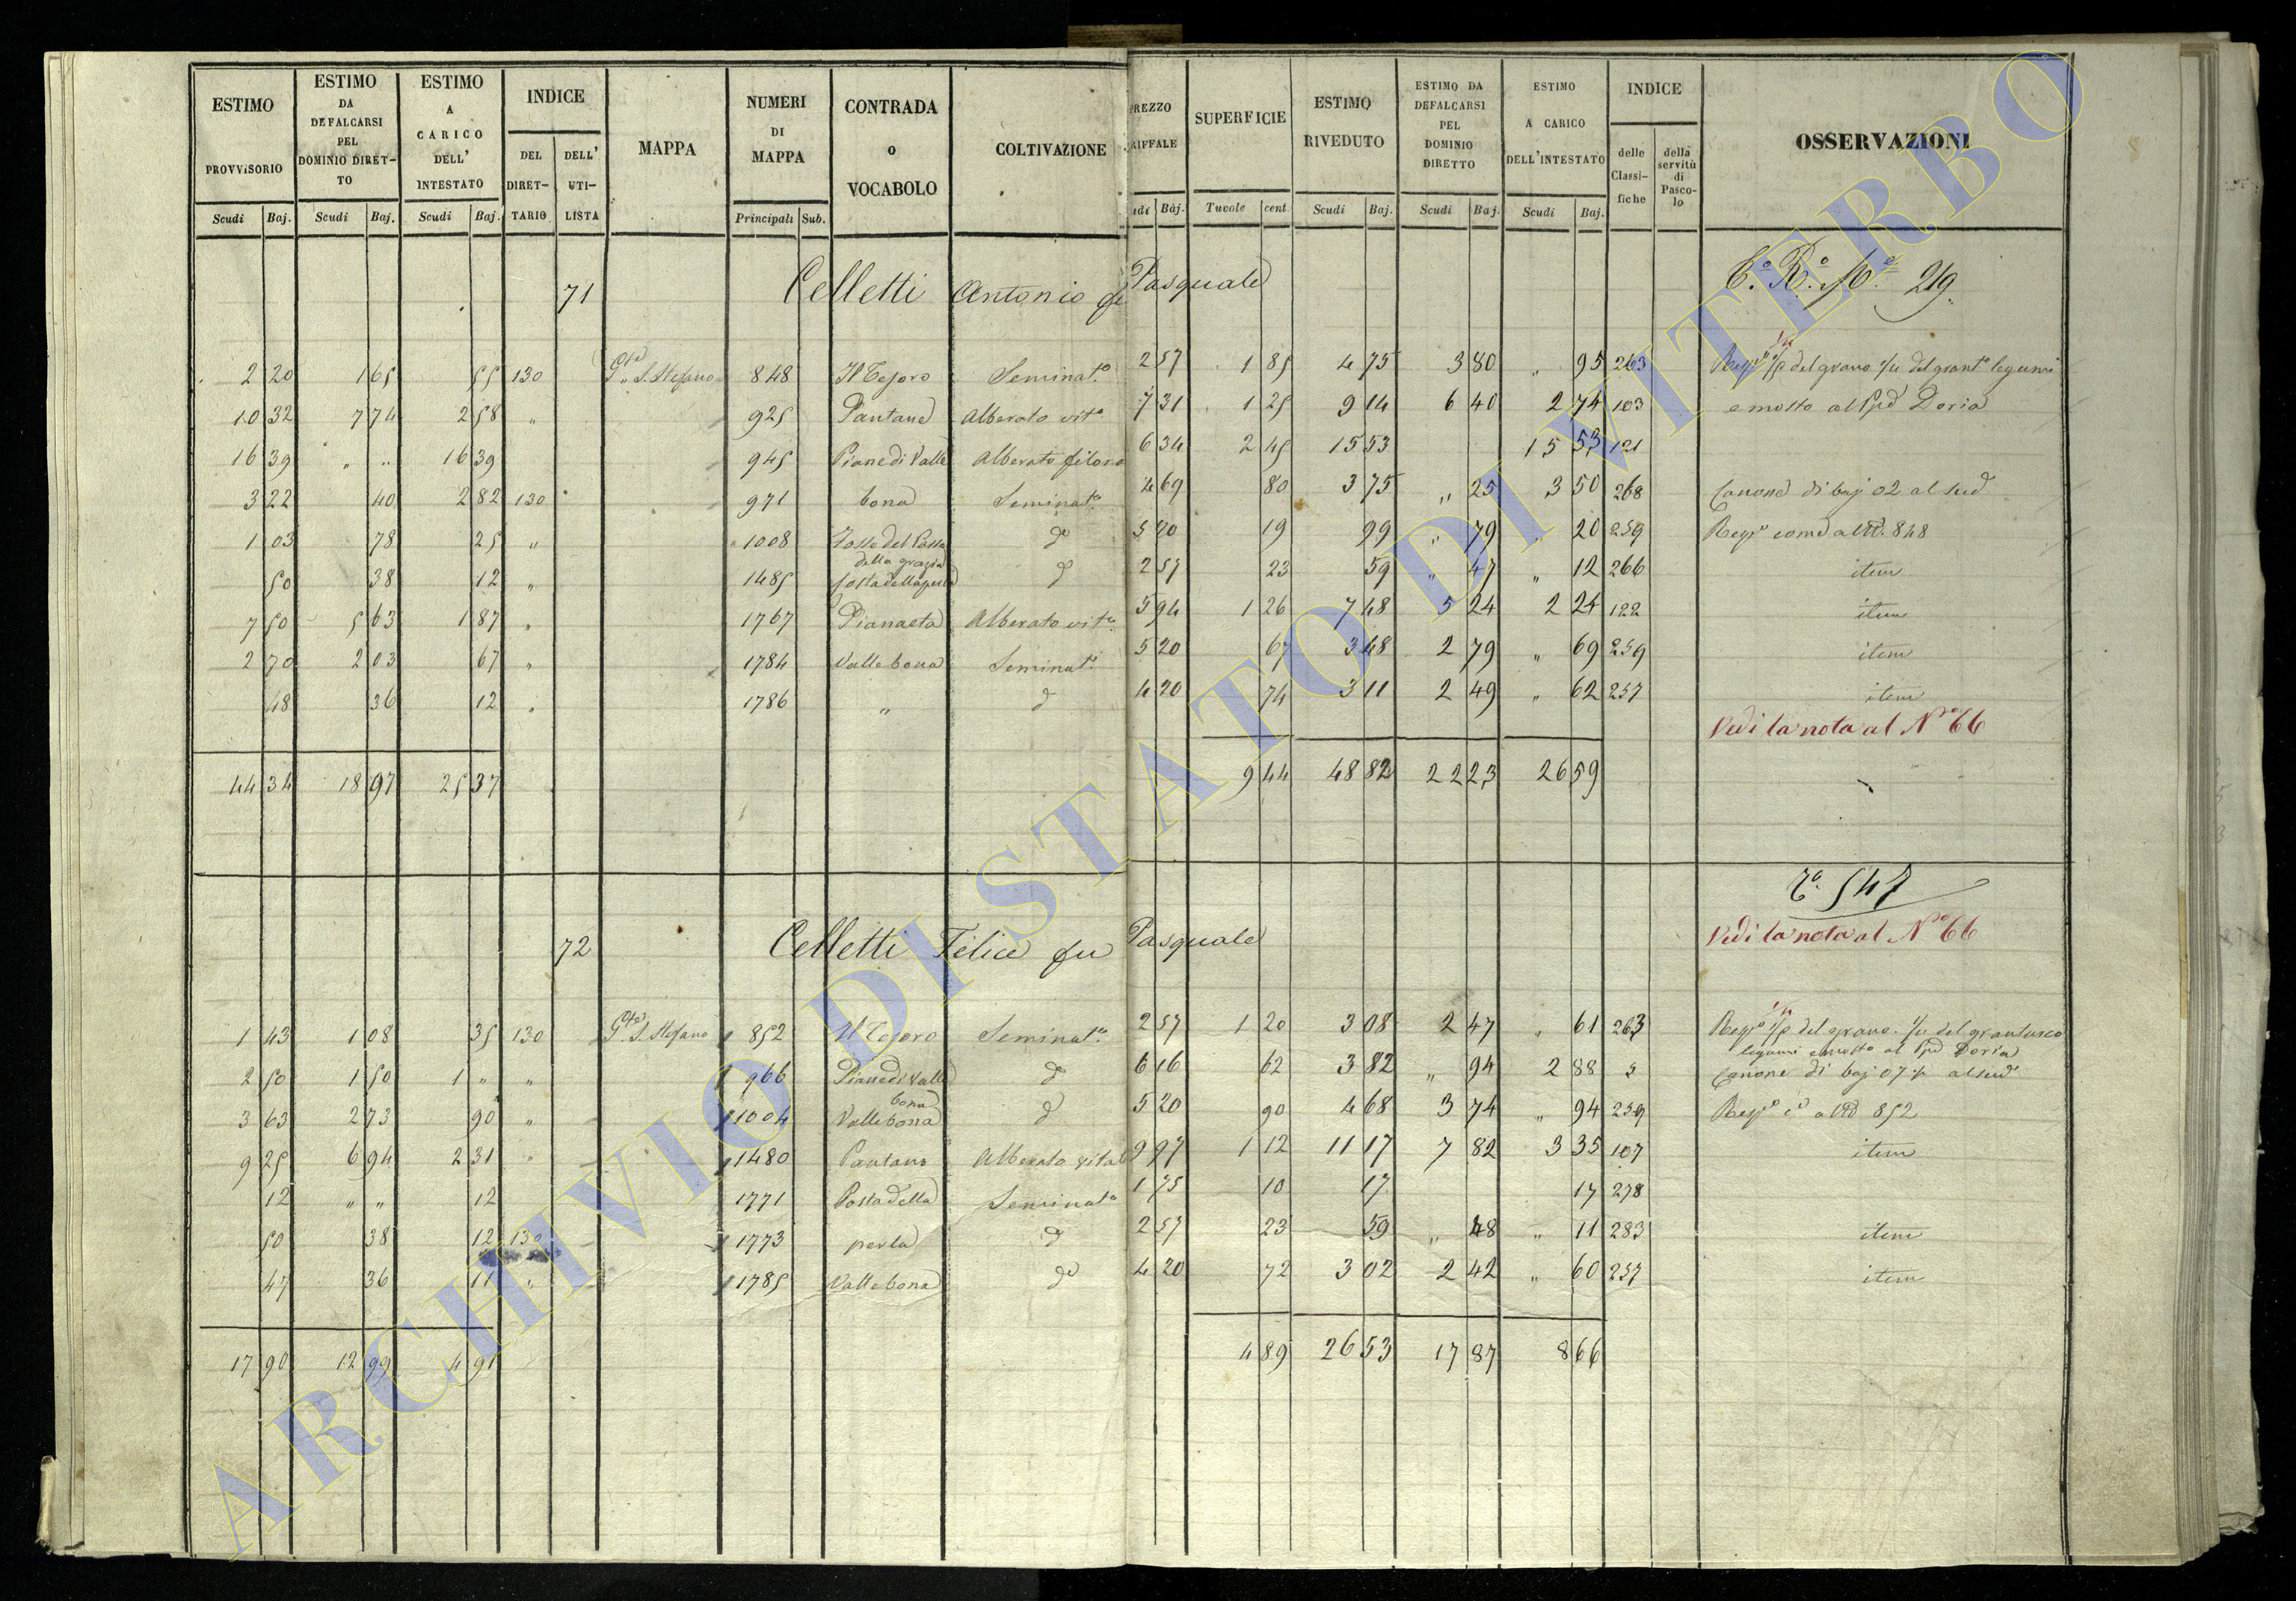 ESTIMO PROVVISORIO Scudi Baj. | ESTIMO DA DEFALCARSI PEL DOMINIO DIRETTO Scudi Baj. | ESTIMO A CARICO DELL' INTESTATO Scudi Baj. | INDICE DEL DIRETTARIO DELL' UTILISTA | MAPPA | NUMERI DI MAPPA Principali Sub. | CONTRADA o VOCABOLO | COLTIVAZIONE | REZZO RIFFALE udi Baj. | SUPERFICIE Tavole cent. | ESTIMO RIVEDUTO Scudi Baj. | ESTIMO DA DEFALCARSI PEL DOMINIO DIRETTO Scudi Baj. | ESTIMO A CARICO DELL'INTESTATO Scudi Baj. | INDICE delle Classifiche della servitù di Pascolo | OSSERVAZIONI
71 Celletti Antonio fu Pasquale 219
2 20 | 1 65 | 55 | 130 | S. Stefano | 848 | Il Tesoro | Seminat.o | 2 57 | 1 85 | 4 75 | 3 80 | „ 95 | 263 | del grano del grant.o legumi
10 32 | 7 74 | 2 58 | „ | 925 | Pantane | Alberato vit.o | 7 31 | 1 25 | 9 14 | 6 40 | 2 74 | 103 | e mosto al Ppe Doria
16 39 | „ „ | 16 39 | 945 | Piane di Valle | Alberato | 6 34 | 2 45 | 15 53 | 15 53 | 121
3 22 | 40 | 2 82 | 130 | 971 | bona | Seminat.o | 4 69 | 80 | 3 75 | „ 25 | 3 50 | 268 | Canone di baj 02 al sud
1 03 | 78 | 25 | „ | 1008 | Fosso del | do | 5 20 | 19 | 99 | „ 79 | „ 20 | 259 | Risp.a come al N. 848
della grazia
50 | 38 | 12 | „ | 1485 | do | 2 57 | 23 | 59 | „ 47 | „ 12 | 266 | item
7 50 | 5 63 | 1 87 | „ | 1767 | Pianaeta | Alberato vit.o | 5 94 | 1 26 | 7 48 | 5 24 | 2 24 | 122 | item
2 70 | 2 03 | 67 | „ | 1784 | Valle bona | Seminat.o | 5 20 | 67 | 3 48 | 2 79 | „ 69 | 259 | item
48 | 36 | 12 | „ | 1786 | „ | do | 4 20 | 74 | 3 11 | 2 49 | „ 62 | 257 | item
Vedi la nota al No 66
44 34 | 18 97 | 25 37 | 9 44 | 48 82 | 22 23 | 26 59
547
72 Celletti Felice fu Pasquale Vedi la nota al No 66
1 43 | 1 08 | 35 | 130 | S. Stefano | 852 | Il Tesoro | Seminat.o | 2 57 | 1 20 | 3 08 | 2 47 | „ 61 | 263 | del grano del grantusco
legumi e mosto al Ppe Doria
2 50 | 1 50 | 1 „ | „ | 966 | Piane di Valle | do | 6 16 | 62 | 3 82 | „ 94 | 2 88 | 3 | Canone di baj 07 al sud
bona
3 63 | 2 73 | 90 | „ | 1004 | Valle bona | do | 5 20 | 90 | 4 68 | 3 74 | „ 94 | 259 | 852
9 25 | 6 94 | 2 31 | „ | 1480 | Pantano | Alberato vitato | 9 97 | 1 12 | 11 17 | 7 82 | 3 35 | 107 | item
12 | „ „ | 12 | 1771 | Costa della | Seminat.o | 1 75 | 10 | 17 | 17 | 278
50 | 38 | 12 | 130 | 1773 | perla | do | 2 57 | 23 | 59 | „ 48 | „ 11 | 283 | item
47 | 36 | 11 | „ | 1785 | Valle bona | do | 4 20 | 72 | 3 02 | 2 42 | „ 60 | 257 | item
17 90 | 12 99 | 4 91 | 4 89 | 26 53 | 17 87 | 8 66
ARCHIVIO DI STATO DI VITERBO